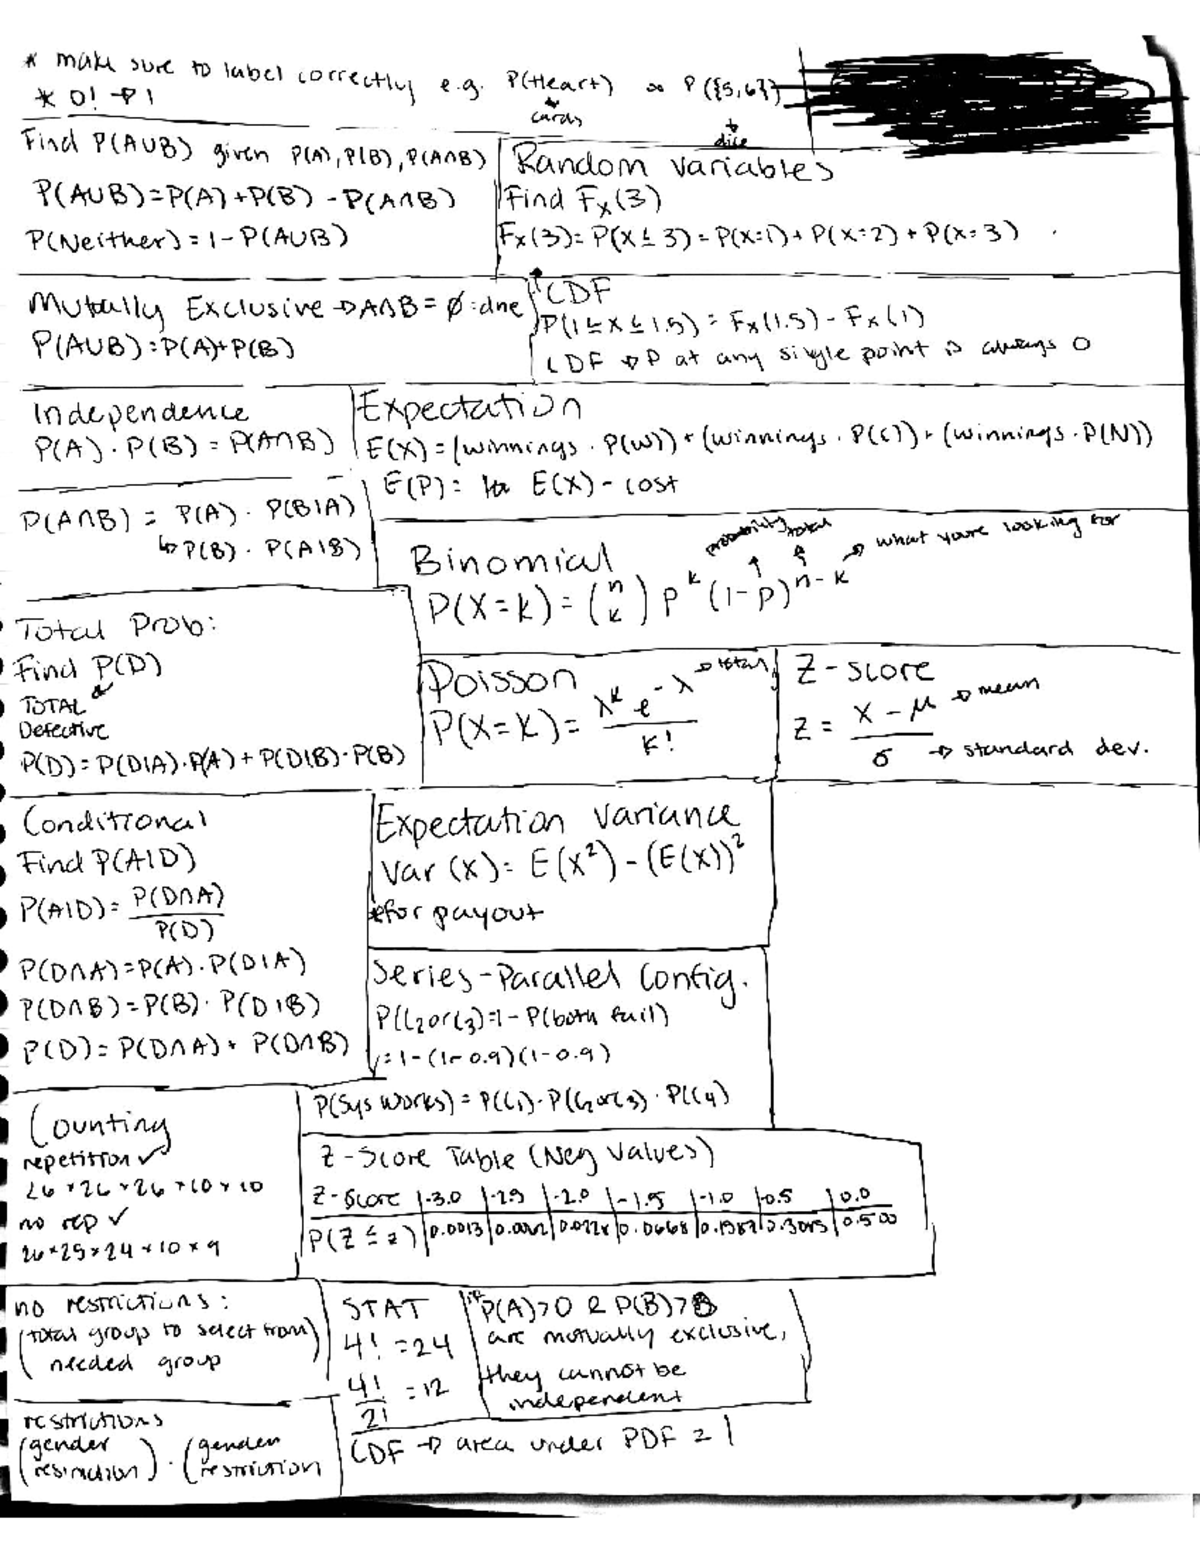 * make sure to label correctly e.g. P(Heart) or P({5,6})
cards
dice
* 0! → 1
Find P(A∪B) given P(A), P(B), P(A∩B)
P(A∪B) = P(A) + P(B) - P(A∩B)
P(Neither) = 1 - P(A∪B)
Random Variables
Find Fx(3)
Fx(3) = P(X ≤ 3) = P(X=1) + P(X=2) + P(X=3)
Mutually Exclusive → A∩B = ∅ : dne
P(A∪B) = P(A) + P(B)
CDF
P(1 ≤ X ≤ 1.5) = Fx(1.5) - Fx(1)
CDF → P at any single point is always 0
Independence
P(A) · P(B) = P(A∩B)
Expectation
E(X) = (winnings · P(W)) + (winnings · P(C)) + (winnings · P(N))
E(P) = E(X) - cost
P(A∩B) = P(A) · P(B|A)
↳ P(B) · P(A|B)
Binomial
probability total → what youre looking for
P(X=k) = (n k) p^k (1-p)^n-k
Total Prob:
Find P(D)
TOTAL
Defective
P(D) = P(D|A) · P(A) + P(D|B) · P(B)
Poisson
P(X=K) = λ^k e^-λ → total / k!
Z-score
Z = X - μ → mean / σ → standard dev.
Conditional
Find P(A|D)
P(A|D) = P(D∩A) / P(D)
P(D∩A) = P(A) · P(D|A)
P(D∩B) = P(B) · P(D|B)
P(D) = P(D∩A) + P(D∩B)
Expectation Variance
Var (X) = E(X²) - (E(X))²
*for payout
Series-Parallel Config.
P(C2 or C3) = 1 - P(both fail)
= 1 - (1 - 0.9)(1 - 0.9)
P(Sys works) = P(C1) · P(C2 or C3) · P(C4)
Counting
repetition ✓
26 * 26 * 26 * 10 * 10
no rep ✓
26 * 25 * 24 * 10 * 9
Z-Score Table (Neg Values)
Z-Score | -3.0 | -2.5 | -2.0 | -1.5 | -1.0 | -0.5 | 0.0
P(Z ≤ z) | 0.0013 | 0.0062 | 0.0228 | 0.0668 | 0.1587 | 0.3085 | 0.500
no restrictions:
(total group to select from)
(needed group
STAT
4! = 24
4!/2! = 12
if P(A)>0 & P(B)>0
are mutually exclusive,
they cannot be
independent
restrictions
(gender restriction) · (gender restriction
CDF → area under PDF = 1